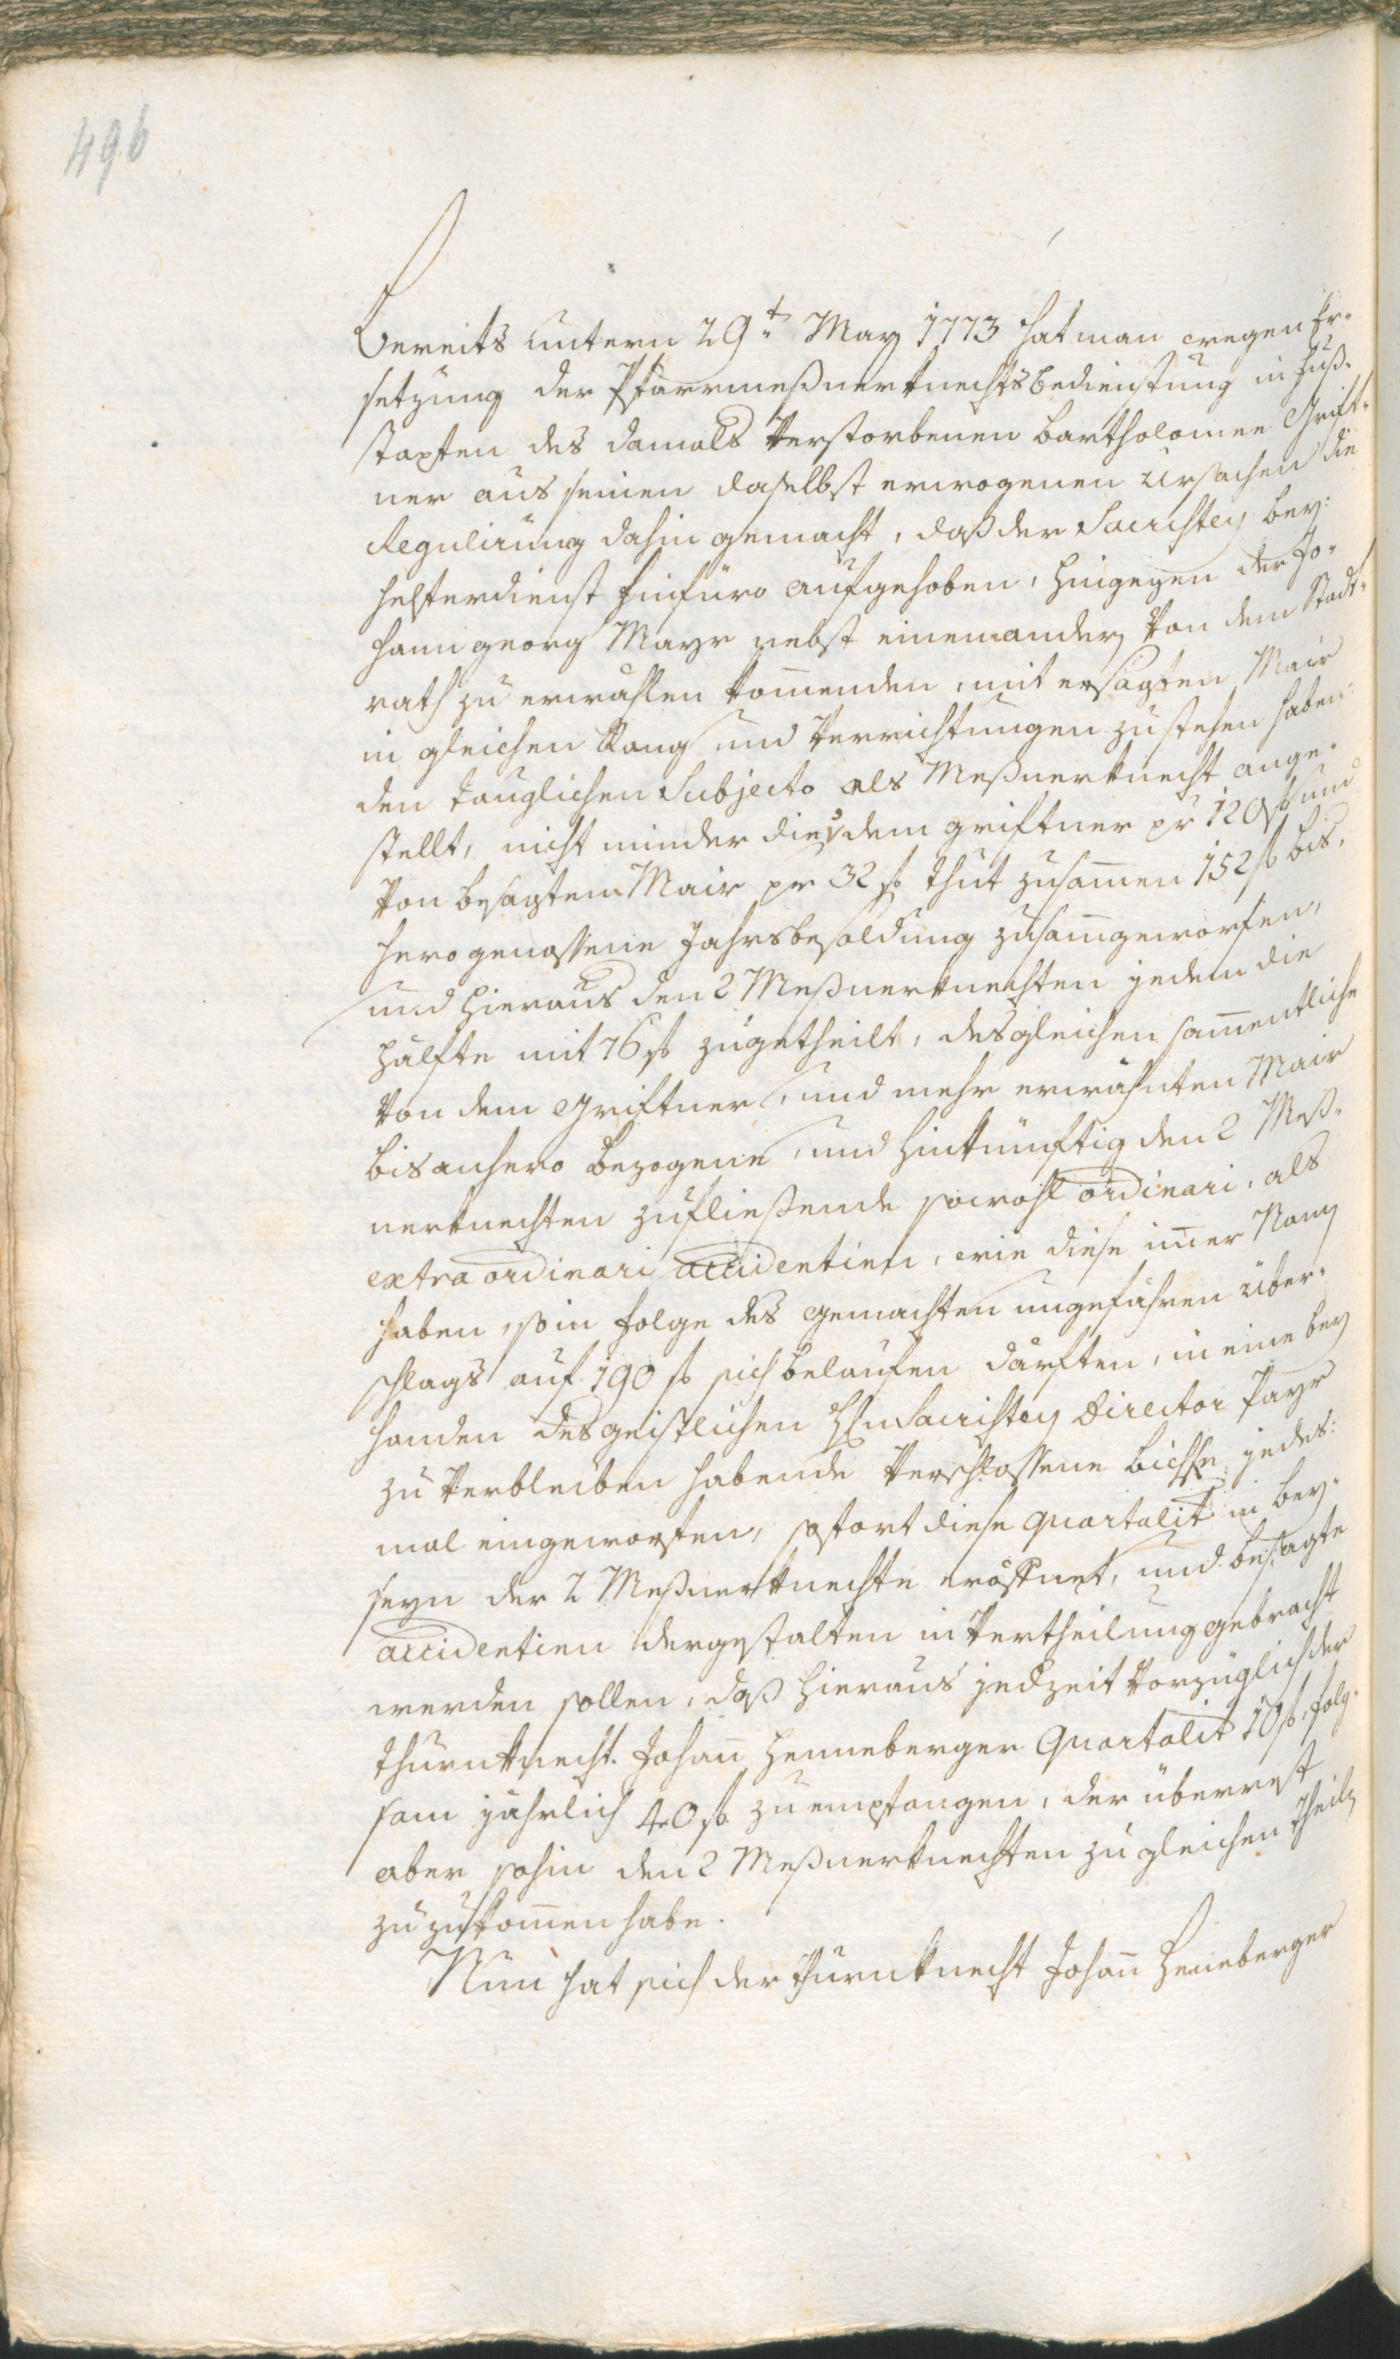 496
Bereits untern 29t May 1773 hat man wegen Er-
setzung der Pfarrmeßnerknechtsbedienstung in Fuß-
stapfen des damals verstorbenen Bartholomee Grift-
ner aus seinen daselbst erwogenen Ursachen die
Regulirung dahin gemacht, daß der Sacristey bey:
helferdienst hinfüro aufgehoben, hingegen der Jo-
hann georg Mayr nebst einem andern von dem Stadt-
rath zu erwählen kom̄enden, mit ersagten Mair
in gleichen Rang und Verrichtungen zu stehen haben-
den tauglichen Subjecto als Meßnerknecht ange-
stellt, nicht minder die dem griftner pr 120 f und
von besagtem Mair pr 32 f thut zusam̄en 152 f bis-
hero genossene Jahrsbesoldung zusam̄geworfen,
und hieraus den 2 Meßnerknechten jedem die
Hälfte mit 76 f zugetheilt, desgleichen sam̄entliche
von dem griftner, und mehr erwähnten Mair
bis anhero bezogene, und hinkünftig den 2 Meß-
nerknechten zufließende sowohl ordinari, als
extra ordinari accidentien, wie diese im̄er Namen
haben, so in Folge des gemachten ungefähren über-
schlags auf 190 f sich belaufen därften, in eine bey
handen des geistlichen Hrn Sacristey Director Payr
zu verbleiben habende verschlossene Bichse jedes:
mal eingeworfen, sofort diese quartalit: in bey-
seyn der 2 Meßnerknechte eröffnet, und besagte
accidentien dergestalten in Vertheilung gebracht
werden sollen, daß hieraus jedzeit vorzüglich der
thurnknecht Johan̄ Henneberger Quartalit 10 f, folg-
sam jährlich 40 f zu empfangen, der überrest
aber sohin den 2 Meßnerknechten zu gleichen theilen
zuzukom̄en habe.
Nun hat sich der thurnknecht Johan̄ Heneberger